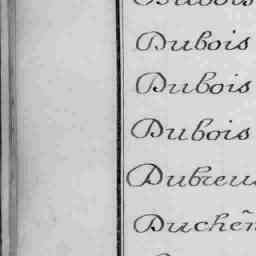 Dubois
Dubois
Dubois
Dubois
Dubreu
Duchên